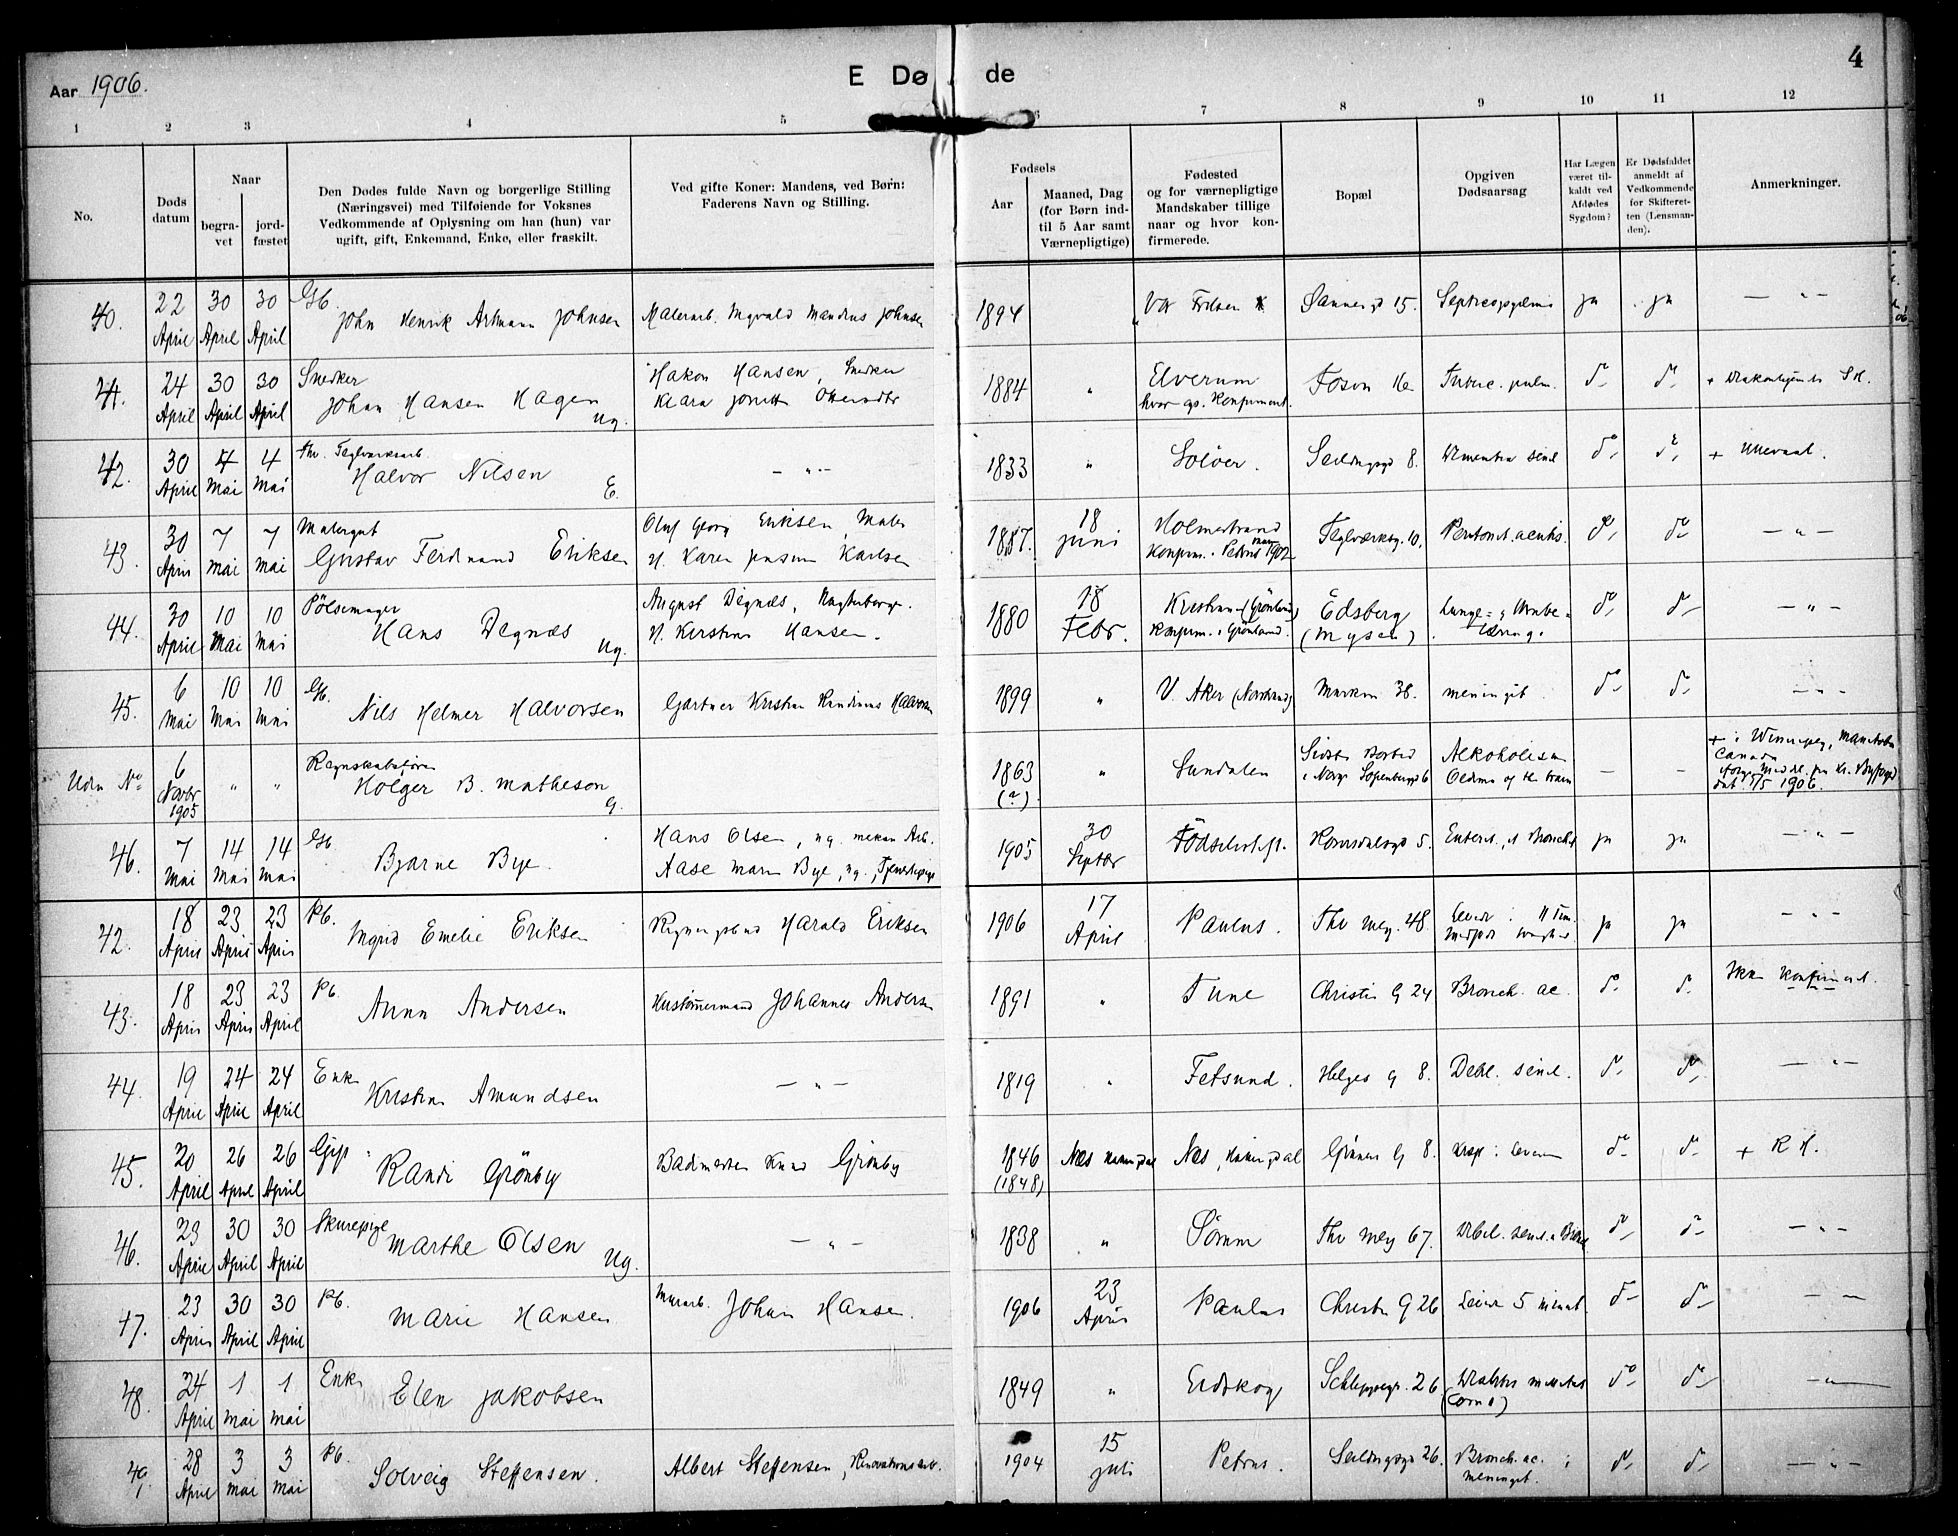 Aar 1906.
E Dø de
4
1 2 3 4 5 6 7 8 9 10 11 12
No.
Døds datum
Naar
begra-vet
jord-fæstet
Den Dødes fulde Navn og borgerlige Stilling
(Næringsvei) med Tilføiende for Voksnes
Vedkommende af Oplysning om han (hun) var
ugift, gift, Enkemand, Enke, eller fraskilt.
Ved gifte Koner: Mandens, ved Børn:
Faderens Navn og Stilling.
Fødsels
Aar
Maaned, Dag
(for Børn ind-
til 5 Aar samt
Værnepligtige)
Fødested
og for værnepligtige
Mandskaber tillige
naar og hvor kon-
firmerede.
Bopæl
Opgiven
Dødsaarsag
Har Lægen
været til-
kaldt ved
Afdødes
Sygdom?
Er Dødsfaldet
anmeldt af
Vedkommende
for Skifteret-
ten (Lensman-
den).
Anmerkninger.
40. 22 April 30 April 30 April Gb. John Henrik Artmann Johnsen Malerarb. Ingvald Mandius Johnsen 1894 " Sannergd 15. ja ja — " —
41. 24 April 30 April 30 April Snedker Johan Hansen Hagen Ug. Hakon Hansen, Snedker 1884 " Elverum hvor og. Konfirmert. Tuberc. pulm. do do
42. 30 April 4 Mai 4 Mai Thv. Teglverksarb. Halvor Nilsen E. — " — 1833 " Solöer. Seildugsgd 8. Dementia senil do do + Ullevaal.
43. 30 April 7 Mai 7 Mai Malergut Gustav Ferdinand Eriksen Oluf Georg Eriksen, Maler H. Karen Karlsen 1887. 18 Juni Holmestrand Konfirm. i Petrus 1902 Teglverksg. 10. Peritonit. acut. do do — " —
44. 30 April 10 Mai 10 Mai Pölsemager Hans Degnæs Ug. August Degnæs, H. Kirstine Hansen. 1880 18 Febr. Kristiania (Grönland) Konfirm. i Grönland. Edsberg (Mysen) do do — " —
45. 6 Mai 10 Mai 10 Mai Gb. Nils Helmer Halvorsen Gartner Kristian Halvorsen 1899 " V. Aker (Nordstrand) Markvn 38. meningit. do do — " —
Uden No 6 Novbr 1905 " " Regnskabsförer Holger B. Matheson G. 1863 (?) " Sundalen Sidste Bosted i Norge Sofienbergd 6 Alkoholism Oedema of the brain — — + i Winnipeg, Manitoba Canada 1906.
46. 7 Mai 14 Mai 14 Mai Gb. Bjarne Bye. Hans Olsen, ug. mekan Arb. Aase Marie Bye, ug., Tjenestepige 1905 30 Septbr Födselsstift. Korsvoldsgd 5. Enterit. ja ja — " —
42. 18 April 23 April 23 April Pb. Ingrid Emelie Eriksen Harald Eriksen 1906 17 April Paulus. Thv mey. 48. ja ja — " —
43. 18 April 23 April 23 April Pb. Anna Andersen Johannes Andersen 1891 " Tune Christies G 24 Bronch. ac. do do Ikke konfirmert.
44. 19 April 24 April 24 April Enke Kristine Amundsen — " — 1819 " Fetsund. Helges G 8. Debil. senil. do do — " —
45. 20 April 26 April 26 April Gift Randi Grönby Badmester Knud Grönby 1846 (1848) Næs Hallingdal Næs, Hallingdal Gröners G 8. do do + R H.
46. 23 April 30 April 30 April Skurepige Marthe Olsen Ug. — " — 1838 " Sörum Thv mey 67. Debil. senil. do do — " —
47. 23 April 30 April 30 April Pb. Marie Hansen Murarb. Johan Hansen. 1906 23 April Paulus Christies G 26 Levede 5 minut. do do — —
48. 24 April 1 Mai 1 Mai Enke Elen Jakobsen 1849 " Eidskog Schleppegr. 26 Diabetes mellitus (Coma) do do — " —
49. 28 April 3 Mai 3 Mai Pb. Solveig Steffensen. Albert Steffensen, Renovationsarb. 1904 15 Juli Petrus. Seildugsgd 26. Bronch. ac. Meningit. do do — " —